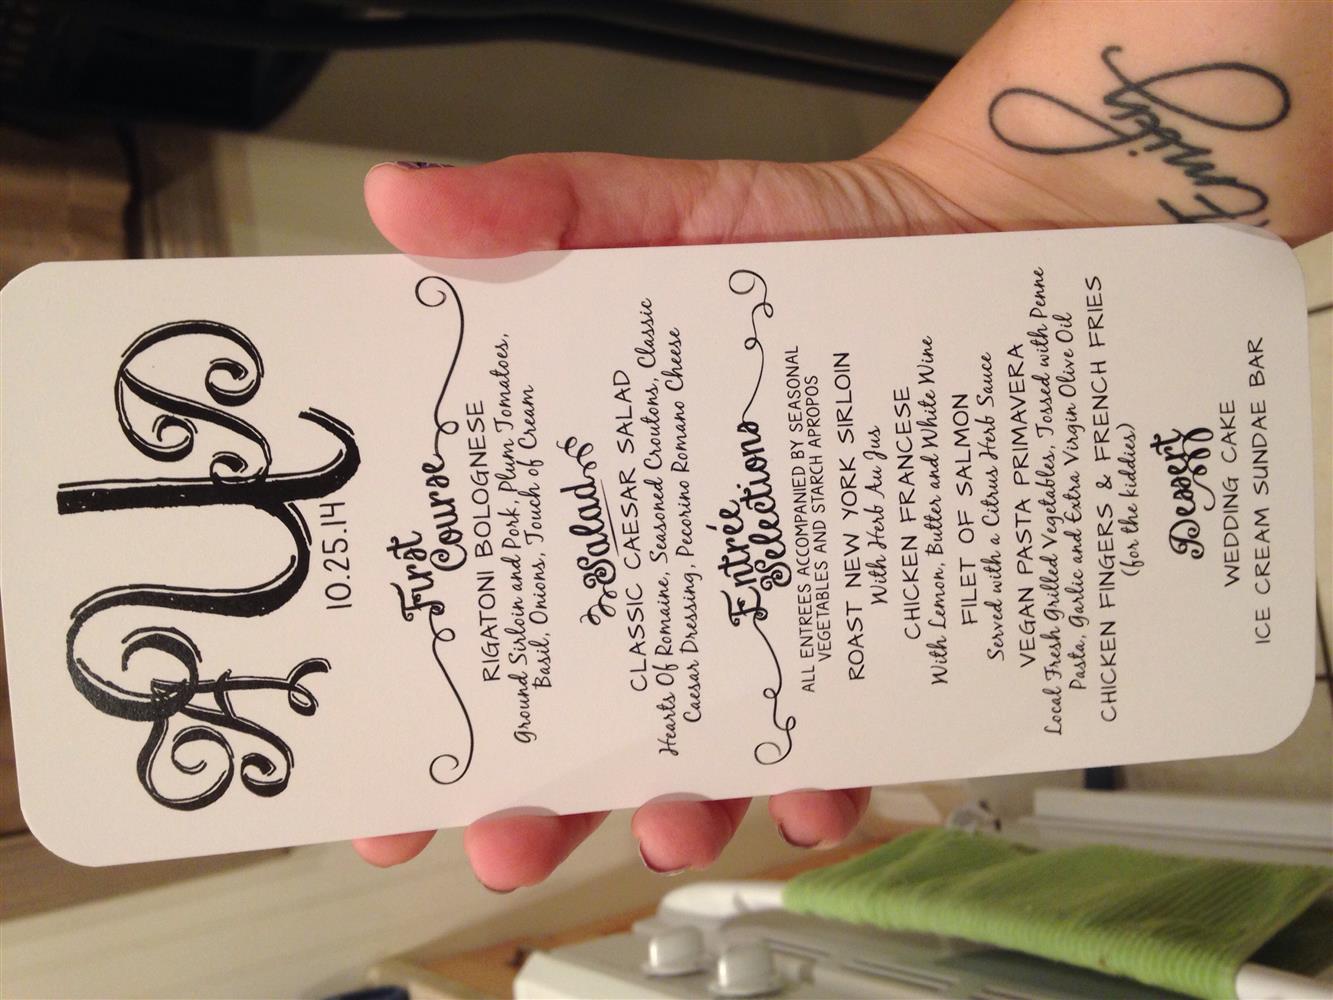 10.25.14
First
Course
RIGATONI BOLOGNESE
Ground Sirloin and Pork, Plum Tomatoes,
Basil, Onions, Touch of Cream
Salad
CLASSIC CAESAR SALAD
Hearts Of Romaine, Seasoned Croutons, Classic
Caesar Dressing, Pecorino Romano Cheese
Entrée
Selections
ALL ENTREES ACCOMPANIED BY SEASONAL
VEGETABLES AND STARCH APROPOS
ROAST NEW YORK SIRLOIN
With Herb Au Jus
CHICKEN FRANCESE
With Lemon, Butter and White Wine
FILET OF SALMON
Served with a Citrus Herb Sauce
VEGAN PASTA PRIMAVERA
Local Fresh Grilled Vegetables, Tossed with Penne
Pasta, Garlic and Extra Virgin Olive Oil
CHICKEN FINGERS & FRENCH FRIES
(for the kiddies)
Dessert
WEDDING CAKE
ICE CREAM SUNDAE BAR